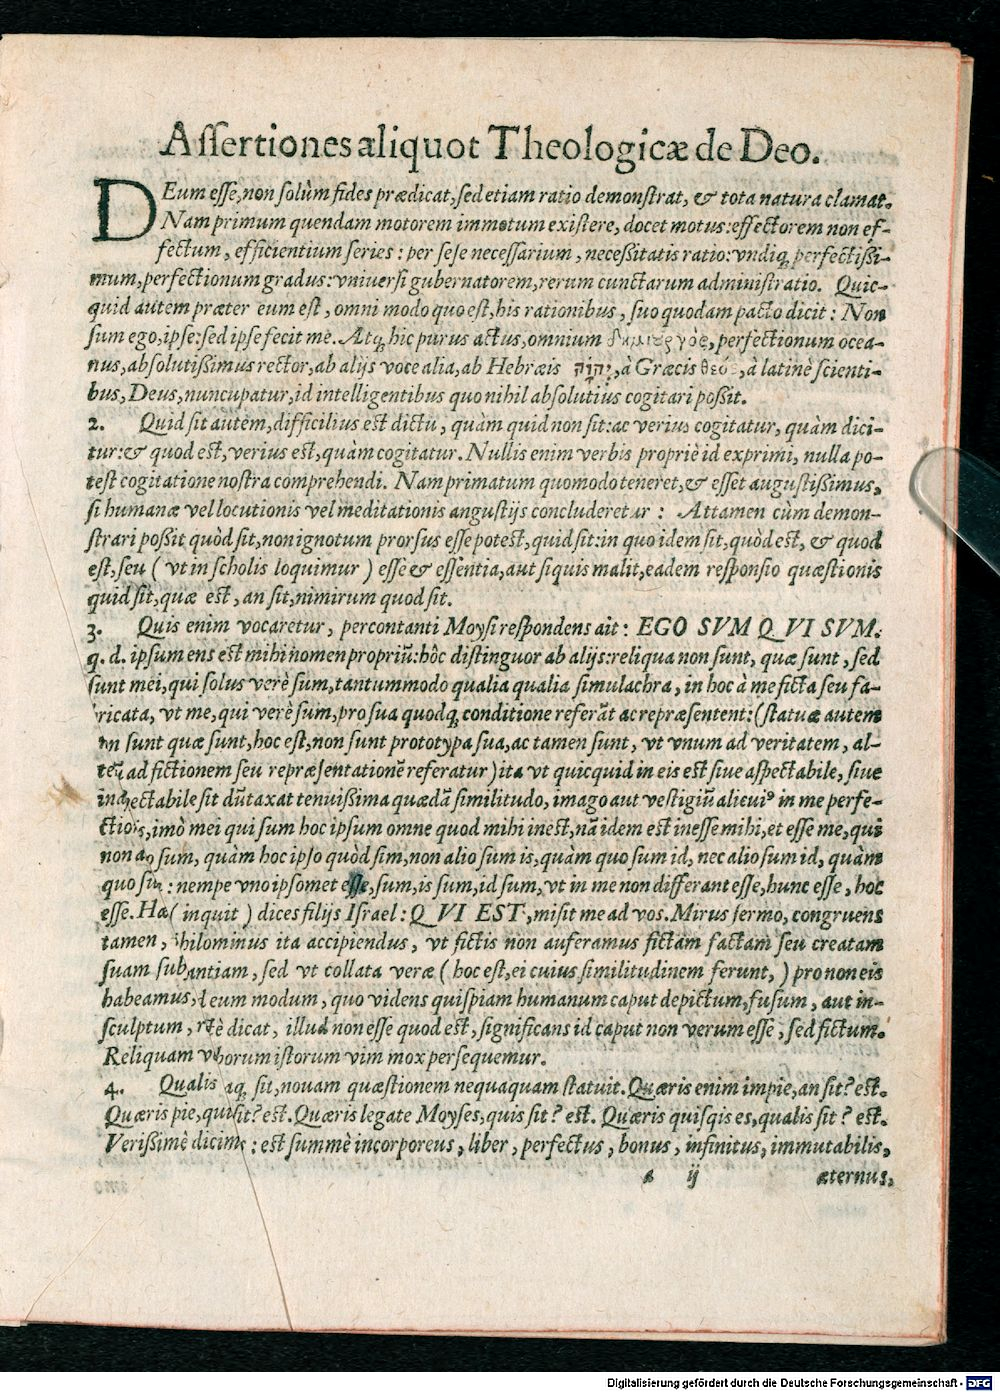 Assertiones aliquot Theologicæ de Deo.
DEum esse, non solùm fides prædicat, sed etiam ratio demonstrat, & tota natura clamat.
Nam primum quendam motorem immotum existere, docet motus: effectorem non ef-
fectum, efficientium series: per sese necessarium, necessitatis ratio: vndiq; perfectissi-
mum, perfectionum gradus: vniuersi gubernatorem, rerum cunctarum administratio. Quic-
quid autem præter eum est, omni modo quo est, his rationibus, suo quodam pacto dicit: Non
sum ego, ipse: sed ipse fecit me. Atq; hic purus actus, omnium δημιουργὸς, perfectionum ocea-
nus, absolutissimus rector, ab alijs voce alia, ab Hebræis יְהוָֹה, à Græcis θεὸς, à latinè scienti-
bus, Deus, nuncupatur, id intelligentibus quo nihil absolutius cogitari possit.
2. Quid sit autem, difficilius est dictu, quàm quid non sit: ac verius cogitatur, quàm dici-
tur: & quod est, verius est, quàm cogitatur. Nullis enim verbis propriè id exprimi, nulla po-
test cogitatione nostra comprehendi. Nam primatum quomodo teneret, & esset augustissimus,
si humanæ vel locutionis vel meditationis angustijs concluderetur: Attamen cùm demon-
strari possit quòd sit, non ignotum prorsus esse potest, quid sit: in quo idem sit, quòd est, & quod
est, seu ( vt in scholis loquimur ) esse & essentia, aut si quis malit, eadem responsio quæstionis
quid sit, quæ est, an sit, nimirum quod sit.
3. Quis enim vocaretur, percontanti Moysi respondens ait: EGO SVM QVI SVM.
q. d. ipsum ens est mihi nomen propriū: hôc distinguor ab alijs: reliqua non sunt, quæ sunt, sed
sunt mei, qui solus verè sum, tantummodo qualia qualia simulachra, in hoc à me ficta seu fa-
bricata, vt me, qui verè sum, pro sua quodq; conditione referāt ac repræsentent: (statuæ autem
non sunt quæ sunt, hoc est, non sunt prototypa sua, ac tamen sunt, vt vnum ad veritatem, al-
terū ad fictionem seu repræsentationē referatur) ita vt quicquid in eis est siue aspectabile, siue
inaspectabile sit dūtaxat tenuissima quædā similitudo, imago aut vestigiū alicui⁹ in me perfe-
ctionis, imò mei qui sum hoc ipsum omne quod mihi inest, nā idem est inesse mihi, et esse me, qui
non alio sum, quàm hoc ipso quòd sim, non alio sum is, quàm quo sum id, nec alio sum id, quàm
quo sim: nempe vno ipsomet esse, sum, is sum, id sum, vt in me non differant esse, hunc esse, hoc
esse. Hæc ( inquit ) dices filijs Israel: QVI EST, misit me ad vos. Mirus sermo, congruens
tamen, Philominus ita accipiendus, vt fictis non auferamus fictam factam seu creatam
suam substantiam, sed vt collata veræ ( hoc est, ei cuius similitudinem ferunt, ) pro non eis
habeamus, ad eum modum, quo videns quispiam humanum caput depictum, fusum, aut in-
sculptum, rectè dicat, illud non esse quod est, significans id caput non verum esse, sed fictum.
Reliquam verborum istorum vim mox persequemur.
4. Qualis itaq; sit, nouam quæstionem nequaquam statuit. Quæris enim impie, an sit? est.
Quæris pie, quis sit? est. Quæris legate Moyses, quis sit? est. Quæris quisqis es, qualis sit? est.
Verissimè dicimus: est summè incorporeus, liber, perfectus, bonus, infinitus, immutabilis,
a ij æternus,
Digitalisierung gefördert durch die Deutsche Forschungsgemeinschaft - DFG